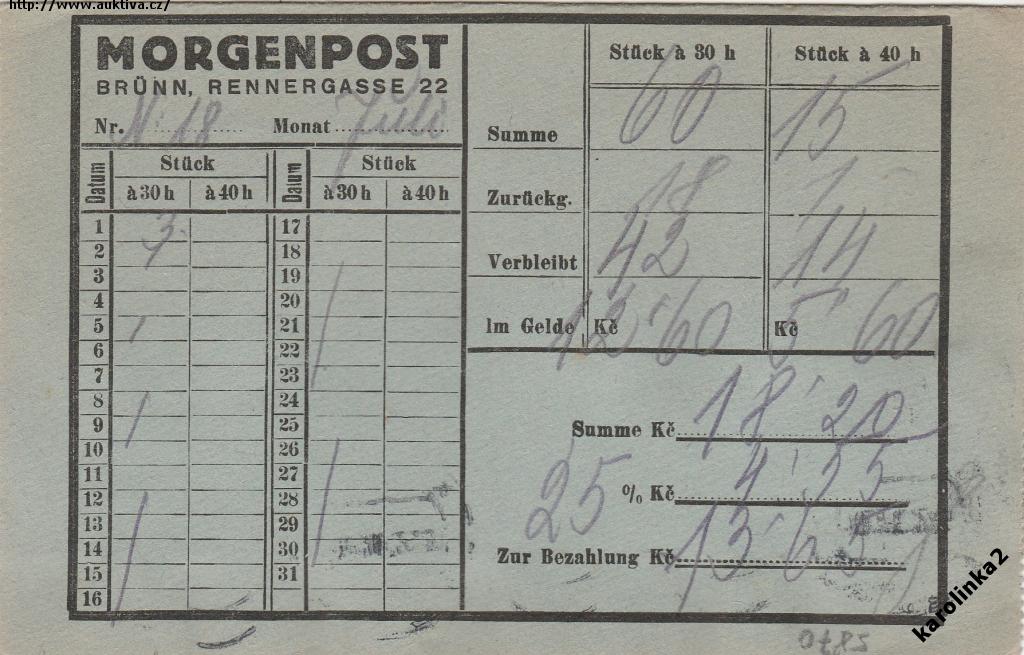 http://www.auktiva.cz/
MORGENPOST
BRÜNN, RENNERGASSE 22
Nr. N: 18 Monat Juli
Datum Stück Datum Stück
à 30 h à 40 h à 30 h à 40 h
1 3 17
2 18
3 19
4 20
5 21
6 22
7 23
8 24
9 25
10 26
11 27
12 28
13 29
14 30
15 31
16
Stück à 30 h Stück à 40 h
Summe 60 15
Zurückg. 18 1
Verbleibt 42 14
Im Gelde Kč 12 60 Kč 5 60
Summe Kč 18 20
25 % Kč 4 55
Zur Bezahlung Kč 13 65
karolinka2